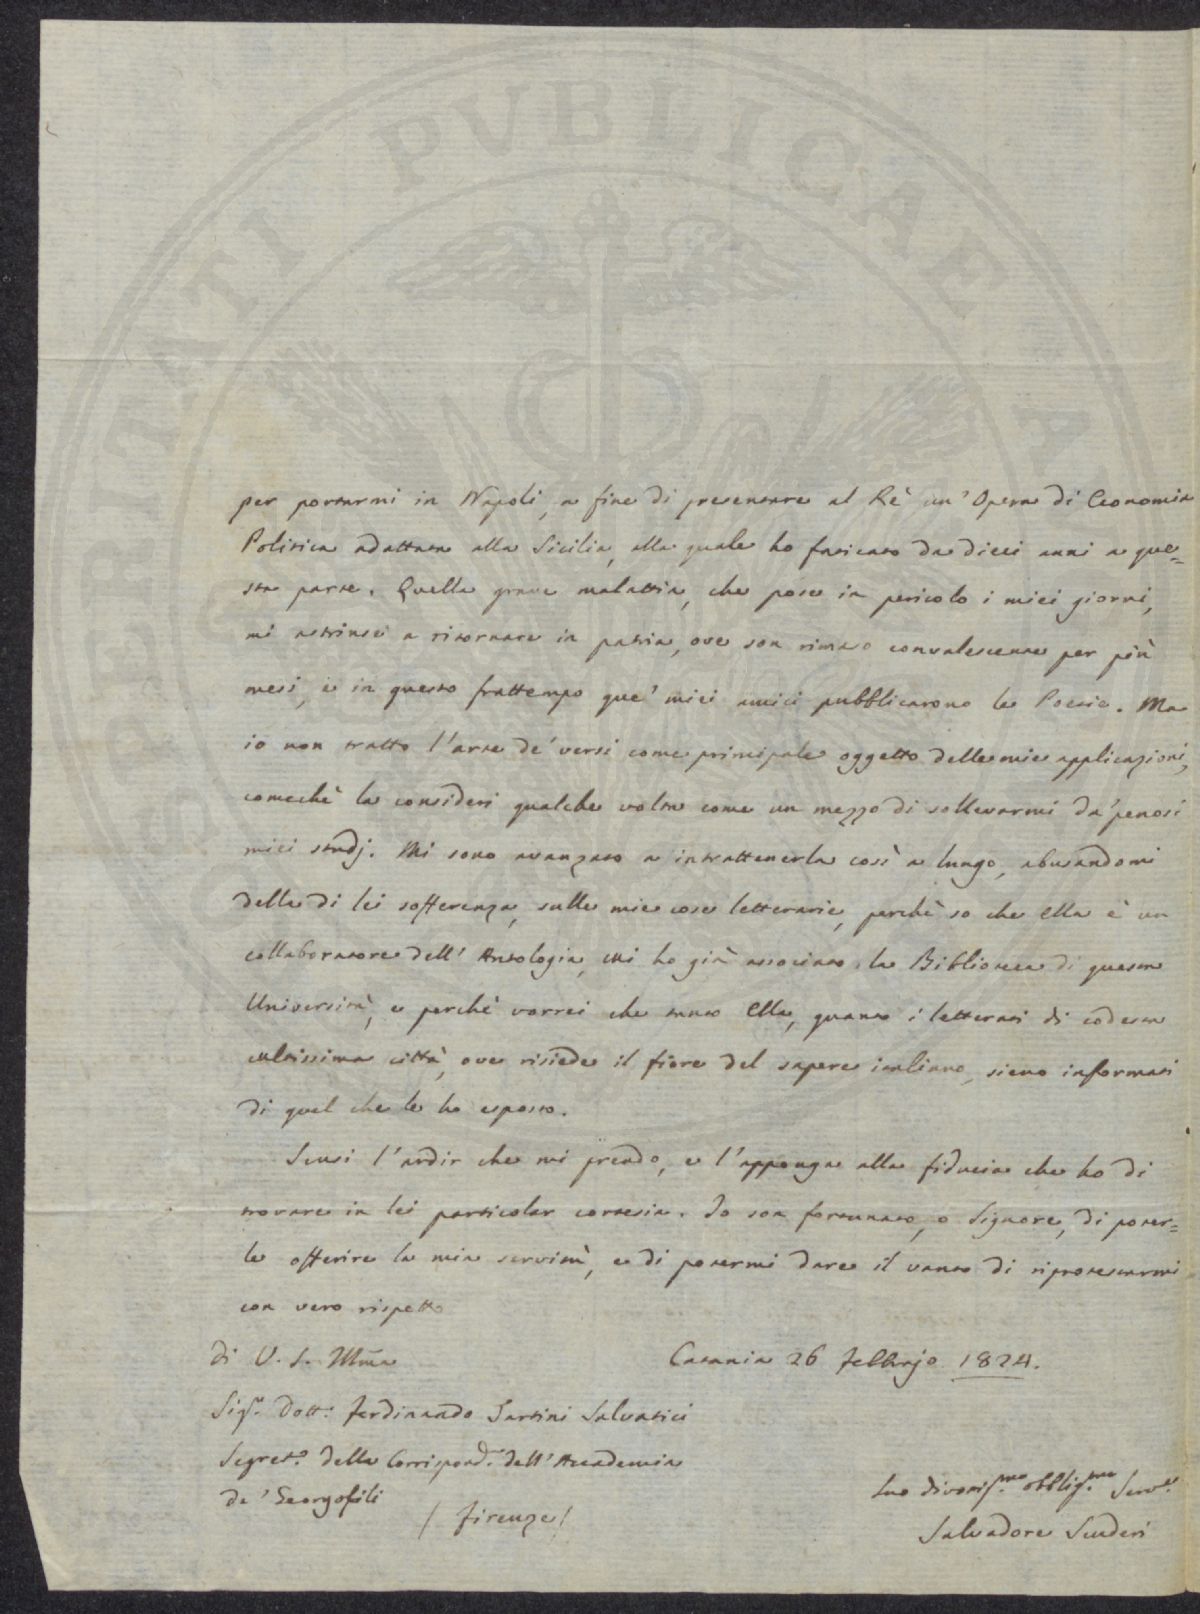 per portarmi in Napoli, a fine di presentare al Rè un' Opera di Economia
Politica adattata alla Sicilia, alla quale ho faticato da dieci anni a que=
sta parte. Quella grave malattia, che pose in pericolo i miei giorni,
mi astrinse a ritornare in patria, ove son rimaso convalescente per più
mesi, e in questo frattempo que' miei amici pubblicarono le Poesie. Ma
io non tratto l'arte de' versi come principale oggetto delle mie applicazioni,
comechè la consideri qualche volta come un mezzo di sollevarmi da' penosi
miei studj. Mi sono avanzato a intrattenerla così a lungo, abusandomi
della di lei sofferenza, sulle mie cose letterarie, perchè so che ella è un
collaboratore dell' Antologia, cui ho già associato la Biblioteca di questa
Università, e perchè vorrei che tanto Ella, quanto i letterati di codesta
cultissima città, ove risiede il fiore del sapere italiano, sieno informati
di quel che le ho esposto.
Scusi l'ardir che mi prendo, e l'apponga alla fiducia che ho di
trovare in lei particolar cortesia. Io son fortunato, o Signore, di poter=
le offerire la mia servitù, e di potermi dare il vanto di riprotestarmi
con vero rispetto
di V. S. Illma
Catania 26 Febbrajo 1824.
Sigr. Dott. Ferdinando Tartini Salvatici
Segreto. della Corrispond. dell' Accademia
de' Georgofili
( Firenze )
Suo divotismo. obbligmo. Servre.
Salvadore Scuderi
PUBLICAE